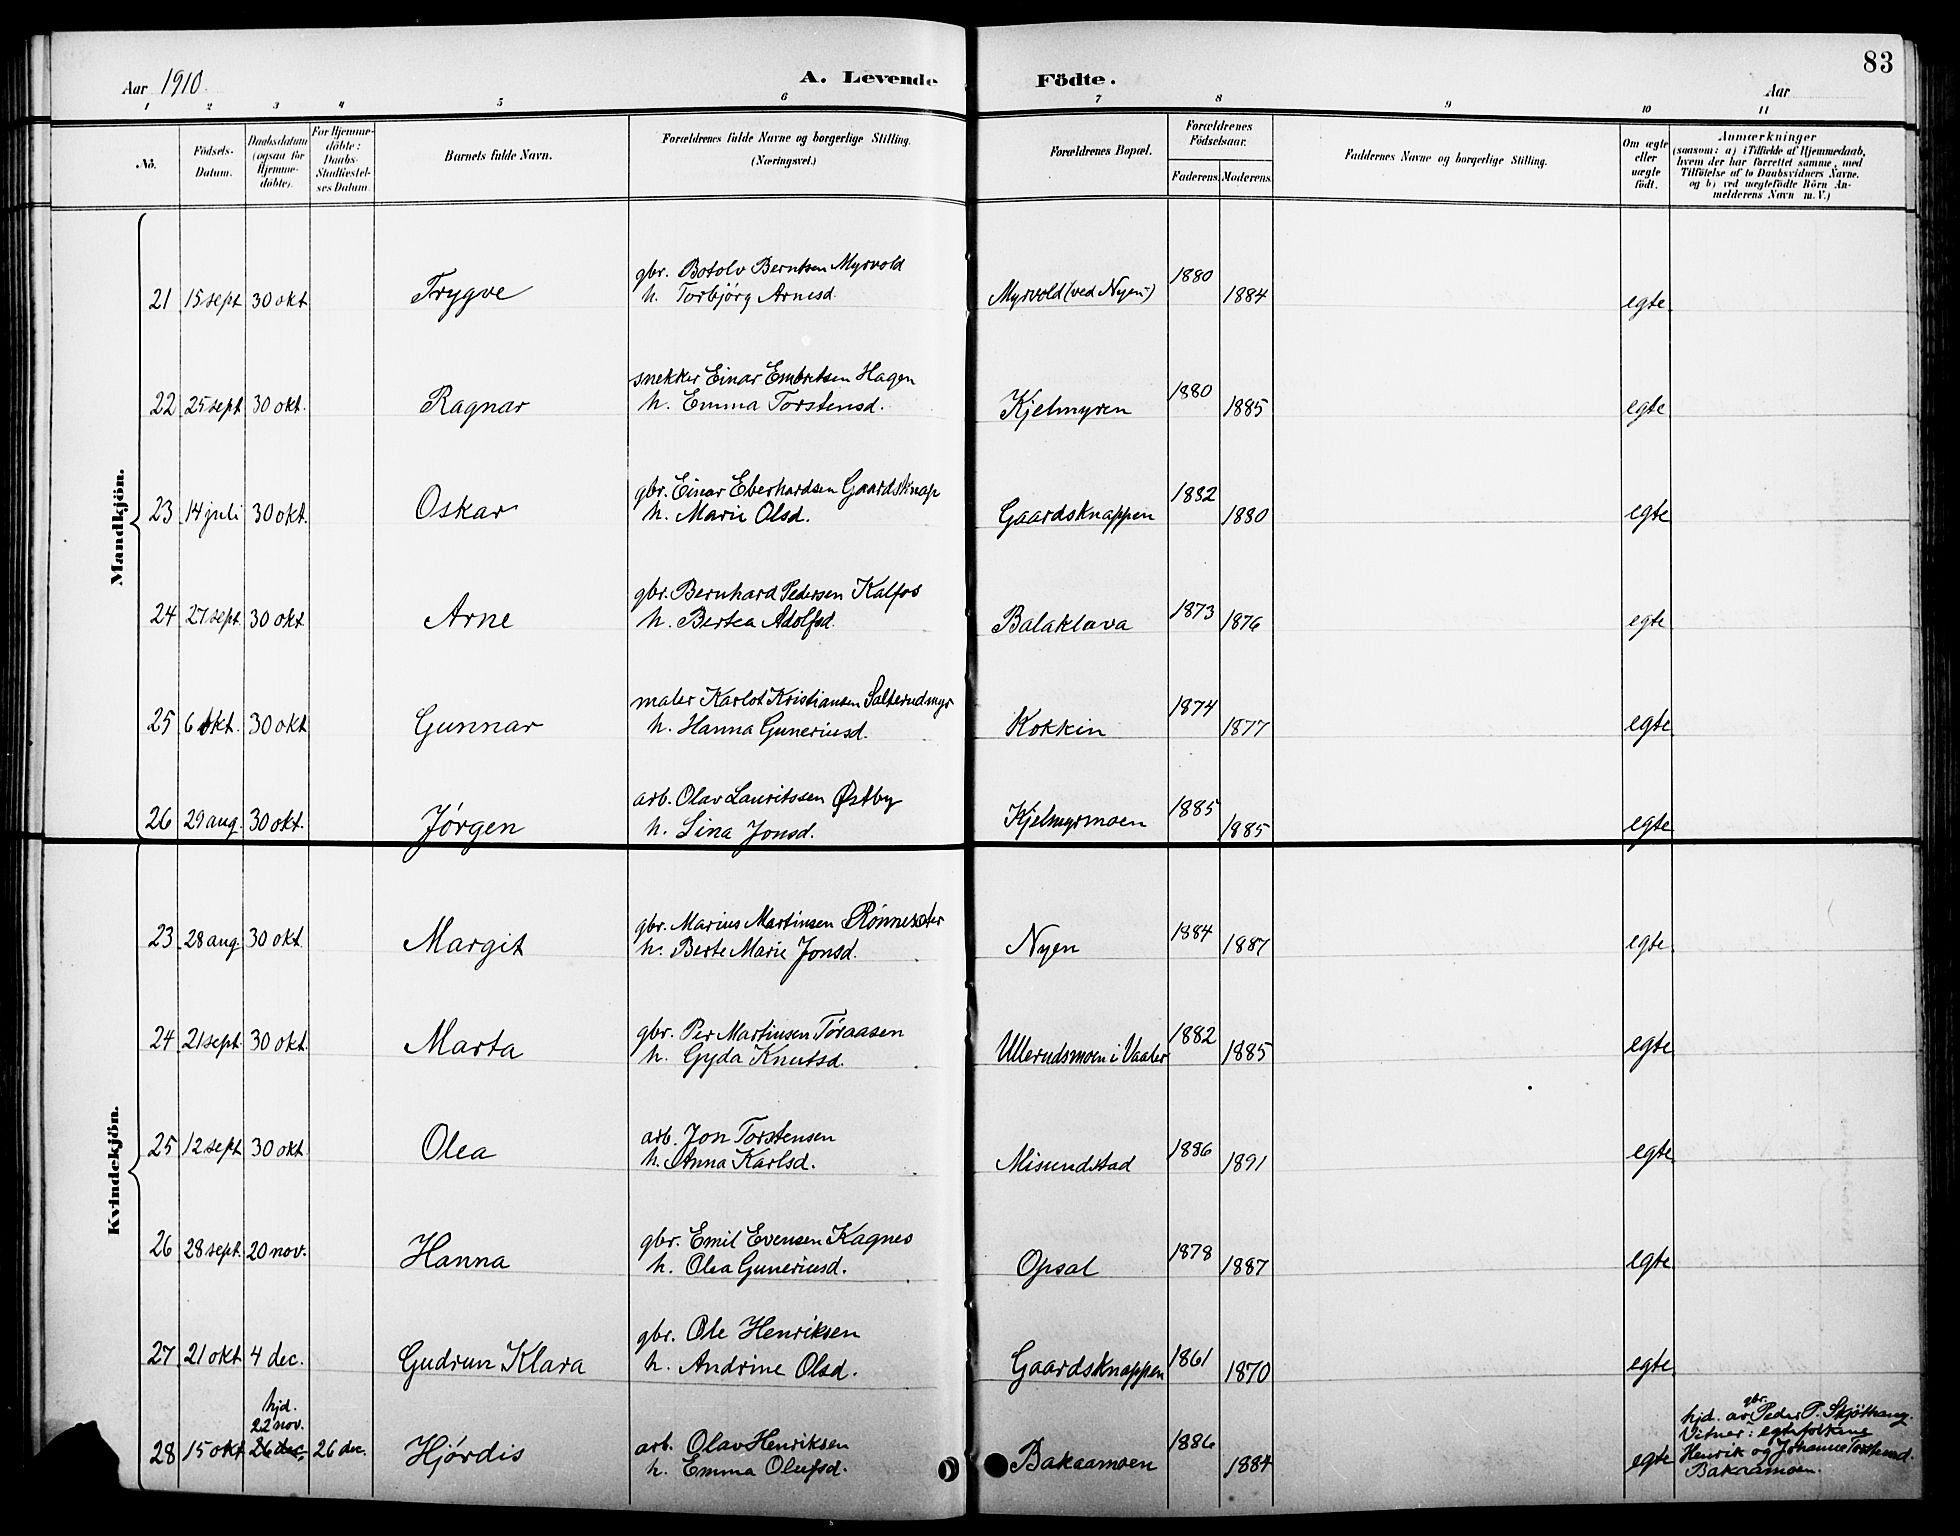 83
Aar 1910. A. Levende Födte. Aar
1 2 3 4 5 6 7 8 9 10 11
No.
Födsels-Datum.
Daabsdatum (ogsaa for Hjemme-döbte).
For Hjemme-döbte: Daabs-Stadfæstel-ses Datum.
Barnets fulde Navn.
Forældrenes fulde Navne og borgerlige Stilling. (Næringsvei.)
Forældrenes Bopæl.
Forældrenes Födselsaar.
Faderens. Moderens.
Faddernes Navne og borgerlige Stilling.
Om ægte eller uægte födt.
Anmærkninger
(saasom: a) i Tilfælde af Hjemmedaab,
hvem der har forrettet samme, med
Tilföielse af to Daabsvidners Navne.
og b) ved uægtefödte Börn An-
melderens Navn m. V.)
Mandkjön.
gbr. Botolv Berntsen Myrvold 1880
21 15 sept 30 okt Trygve h. Torbjørg Arnesd. Myrvold (ved Nyen) 1884 egte
snekker Einar Embretsen Hagen 1880
22 25 sept 30 okt. Ragnar h. Emma Torstensd. Kjelmyren 1885 egte
gbr. Einar Eberhardsen Gaardsknap 1882
23 14 juli 30 okt. Oskar h. Marie Olsd. Gaardsknappen 1880 egte
gbr. Bernhard Pedersen Kalfos 1873
24 27 sept. 30 okt Arne h. Bertea Adolfsd. Balaklava 1876 egte
maler Karlot Kristiansen Salterudmyr 1874
25 6 okt. 30 okt Gunnar h. Hanna Guneriusd. Kokkin 1877 egte
arb. Olav Lauritssen Østby 1885
26 29 aug. 30 okt. Jørgen h. Lina Jonsd. Kjelmyrmoen 1885 egte
Kvindekjön.
gbr. Marius Martinsen Rønnesæter 1884
23 28 aug. 30 okt. Margit h. Berte Marie Jonsd. Nyen 1887 egte
gbr. Per Martinsen Tøraasen 1882
24 21 sept. 30 okt. Marta h. Gyda Knutsd. Ullerudsmoen i Vaaler 1885 egte
arb. Jon Torstensen 1886
25 12 sept 30 okt Olea h. Anna Karlsd. Misundstad 1891 egte
gbr. Emil Evensen Kagnes 1878
26 28 sept. 20 nov. Hanna h. Olea Guneriusd. Opsal 1887 egte
gbr. Ole Henriksen 1861
27 21 okt 4 dec. Gudrun Klara h. Andrine Olsd. Gaardsknappen 1870 egte
hjd. 22 nov. arb. Olav Henriksen 1886
28 15 okt 26 dec. 26 dec. Hjørdis h. Emma Olufsd. Bakaamoen 1884 egte
hjd. av gbr. Peder P. Skjøthaug.
Vitner: egtefolkene
Henrik og Johanne Torstensd.
Bakaamoen.